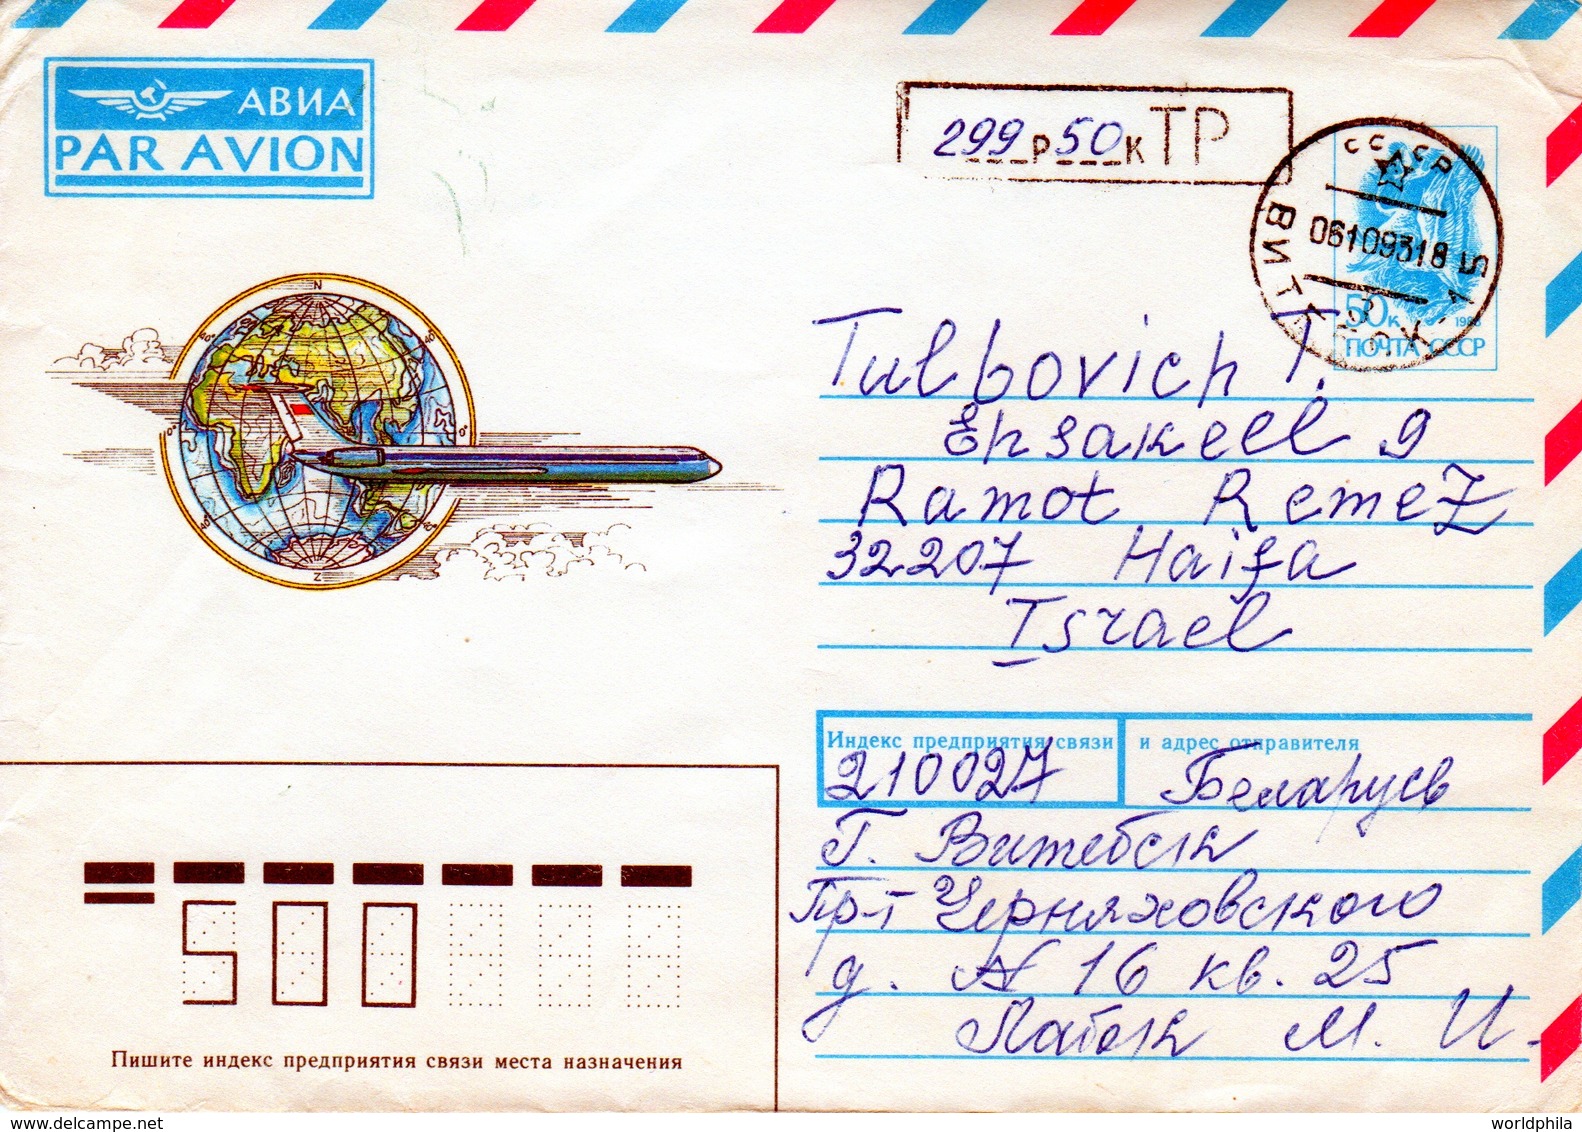 АВИА
PAR AVION
299 р 50 к ТР
СССР
ВИТЕБСК-15
06109318
50к 1988
ПОЧТА СССР
N
Z
Tulbovich T.
Ehsakell 9
Ramot Remez
32207 Haifa
Israel
Индекс предприятия связи и адрес отправителя
210027 Беларусь
г. Витебск
Пр-т Черняховского
д. N 16 кв. 25
М. И.
500
Пишите индекс предприятия связи места назначения
worldphila